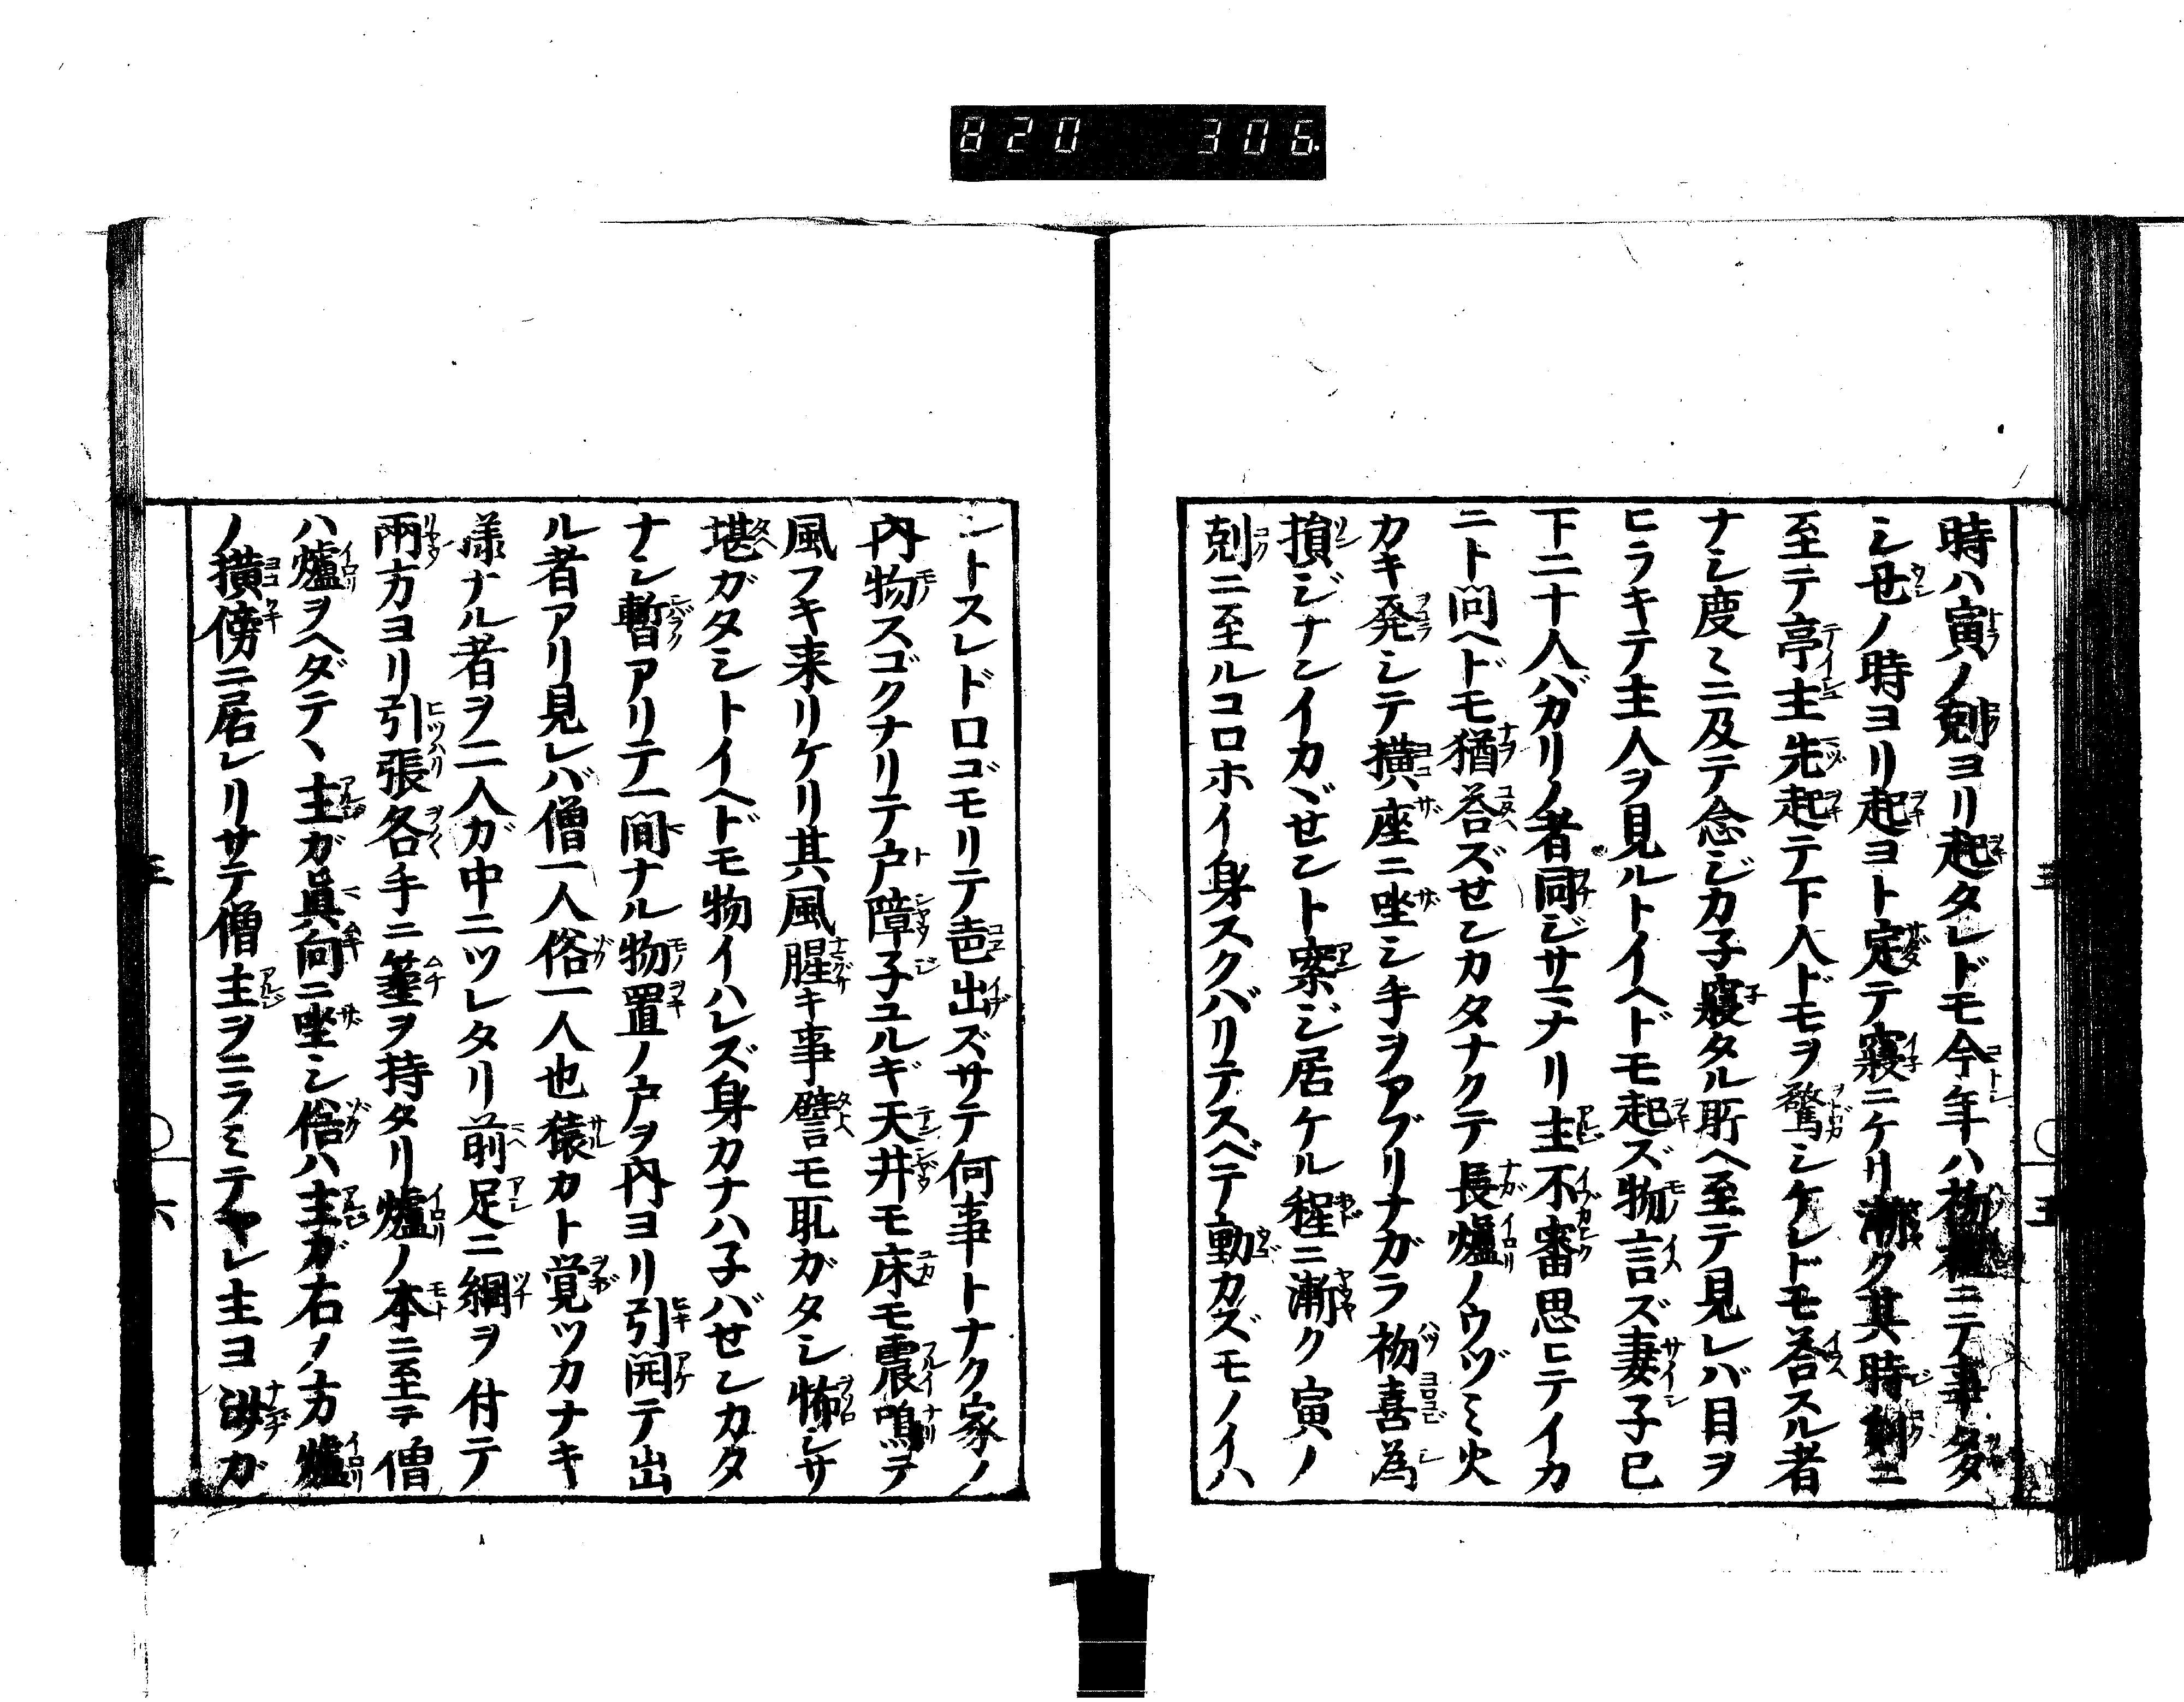 820 306
時ハ寅ノ剋ヨリ起タレドモ今年ハ物種ニテ事タ
シ丑ノ時ヨリ起ヨト定テ寝ニケリ漸ク其時刻ニ
至テ亭主先起テ下人ドモヲ驚シケレドモ答スル者
ナシ度〻ニ及テ念ジカ子寝タル所ヘ至テ見レバ目ヲ
ヒラキテ主人ヲ見ルトイヘドモ起ズ物言ズ妻子已
下二十人バカリノ者同ジサマナリ主不審思ヒテイカ
ニト問ヘドモ猶答ズせンカタナクテ長爐ノウヅミ火
カキ発シテ横座ニ坐シ手ヲアブリナガラ初喜為
損ジナンイカヾせント案ジ居ケル程ニ漸ク寅ノ
剋ニ至ルコロホイ身スクバリテスベテ動カズモノイハ
ントスレドロゴモリテ声出ズサテ何事トナク家ノ
内物スゴクナリテ戸障子ユルギ天井モ床モ震鳴ヲ
風フキ来リケリ其風腥キ事譬モ耻ガタシ怖シサ
堪ガタシトイヘドモ物イハレズ身カナハ子バせンカタ
ナシ暫アリテ一間ナル物置ノ戸ヲ内ヨリ引開テ出
ル者アリ見レバ僧一人俗一人也猿カト覚ツカナキ
様ナル者ヲ二人ガ中ニツレタリ前足ニ綱ヲ付テ
兩方ヨリ引張各手ニ箠ヲ持タリ爐ノ本ニ至テ僧
ハ爐ヲヘダテヽ主ガ眞向ニ坐シ俗ハ主ガ右ノ方爐
ノ横傍ニ居レリサテ僧主ヲニラミテヤレ主ヨ汝ガ
三
五
三
六